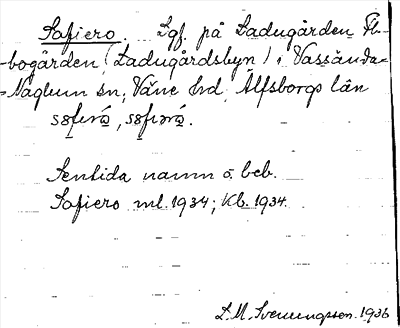 Sofiero. Lgf. på Ladugården Åbogården (Ladugårdsbyn) i Vassända-
=Naglum sn, Väne hd, Älfsborgs län
Sentida namn o. beb.
Sofiero ml. 1934; Kb. 1934.
D. M. Svenungsson. 1936